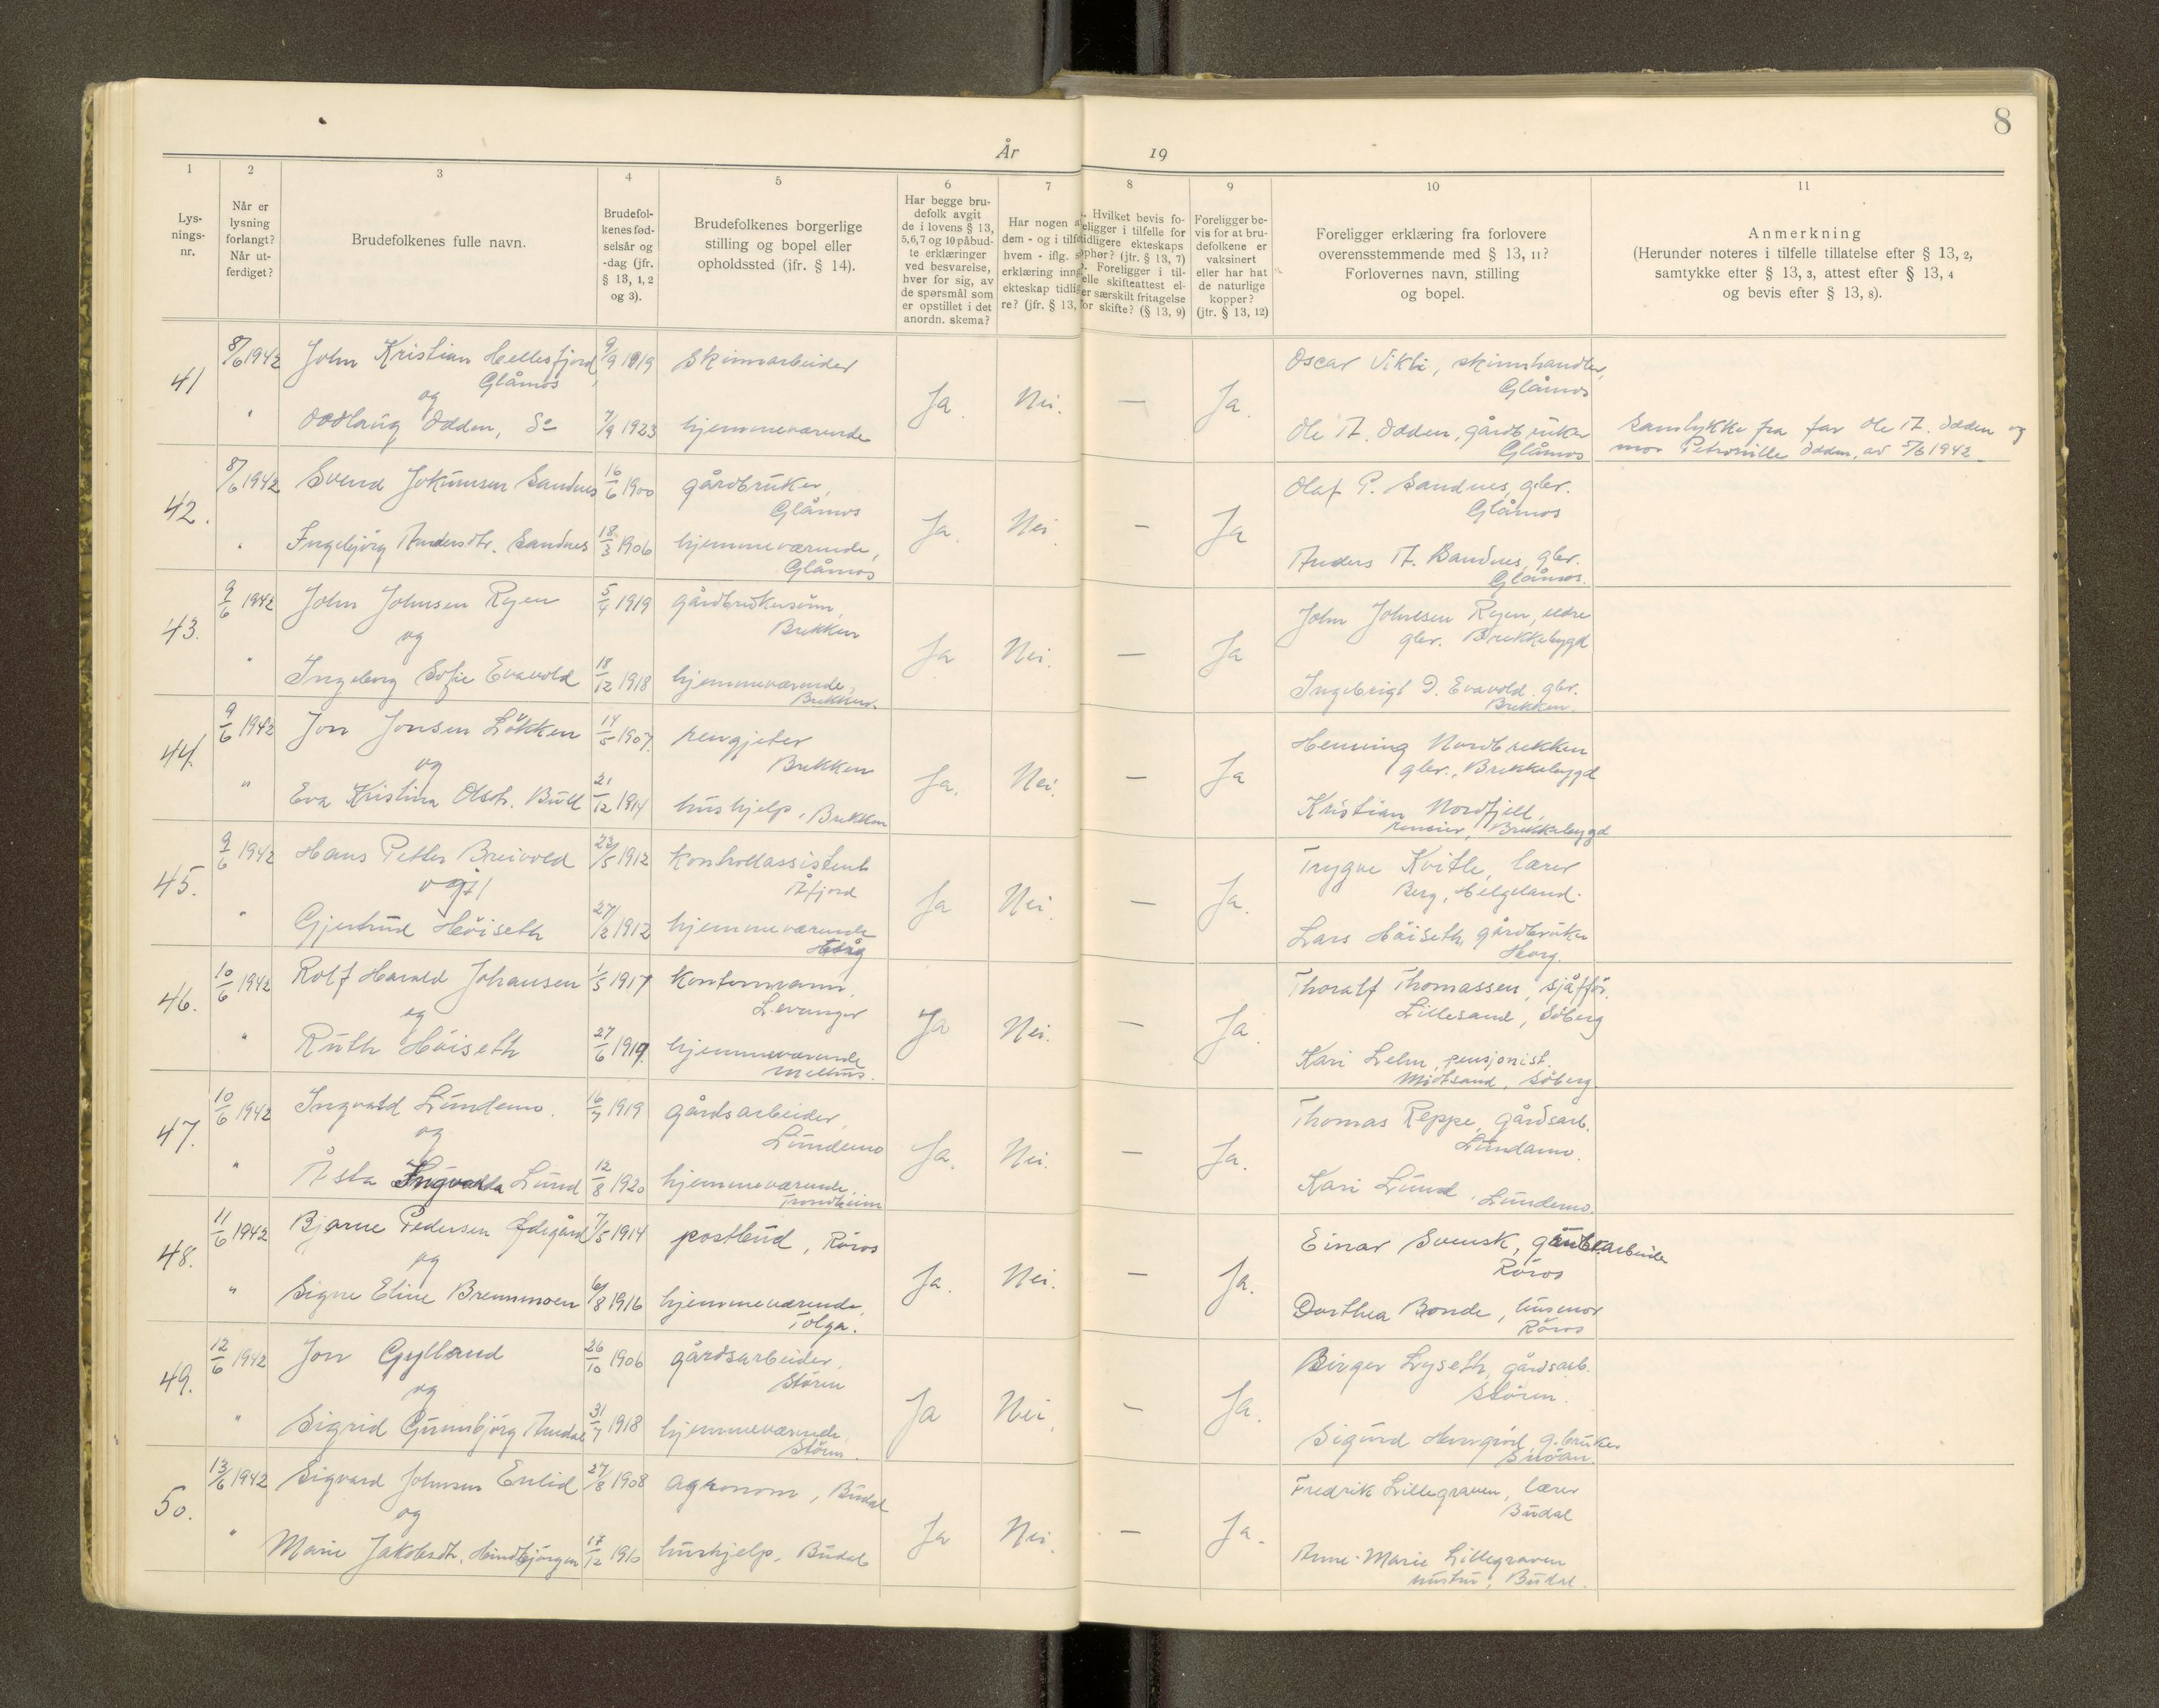 8
År 19
1 2 3 4 5 6 7 8 9 10 11
Lys-
nings-
nr.
Når er
lysning
forlangt?
Når ut-
ferdiget?
Brudefolkenes fulle navn.
Brudefol-
kenes fød-
selsår og
-dag (jfr.
§ 13, 1, 2
og 3).
Brudefolkenes borgerlige
stilling og bopel eller
opholdssted (ifr. § 14).
Har begge bru-
defolk avgit
de i lovens § 13,
5, 6, 7 og 10 påbud-
te erklæringer
ved besvarelse,
hver for sig, av
de spørsmål som
er opstillet i det
anordn. skema?
Har nogen a
dem - og i tilfe
hvem - iflg. s
erklæring inng
ekteskap tidlig
re? (jfr. § 13,
Hvilket bevis fo-
religger i tilfelle for
tidligere ekteskaps
ophør? (jfr. § 13, 7)
Foreligger i til-
elle skifteattest el-
er særskilt fritagelse
for skifte? (§ 13, 9)
Foreligger be-
vis for at bru-
defolkene er
vaksinert
eller har hat
de naturlige
kopper?
(jfr. § 13, 12)
Foreligger erklæring fra forlovere
overensstemmende med § 13, 11?
Forlovernes navn, stilling
og bopel.
Anmerkning
(Herunder noteres i tilfelle tillatelse efter § 13, 2,
samtykke efter § 13, 3, attest efter § 13, 4
og bevis efter § 13, 8).
41 8/6 1942 John Kristian Hellesfjord 9/9 1919 skinnarbeider
Glåmos
og
Oddlaug Odden, do 7/9 1923 hjemmeværende
Ja. Nei. — Ja.
Oscar Vikli, skinnhandler,
Glåmos
Ole A. Odden, gårdbruker
Glåmos
Samtykke fra far Ole A. Odden og
mor Petronille Odden, av 5/6 1942
42. 8/6 1942 Svend Jokumsen Sandnes 16/6 1900 gårdbruker,
Glåmos
Ingebjörg Andersdtr. Sandnes 18/3 1906 hjemmeværende,
Glåmos
Ja. Nei — Ja
Olaf P. Sandnes, gbr.
Glåmos
Anders A. Sandnes, gbr.
Glåmos.
43. 9/6 1942 John Johnsen Ryen 5/4 1919 gårdbrukersönn,
Brekken
og
" Ingeborg Sofie Evavold 18/12 1918 hjemmeværende,
Brekken.
Ja Nei. — Ja
John Johnsen Ryen, eldre
gbr. Brekkebygd
Ingebrigt D. Evavold. gbr.
Brekken.
44. 9/6 1942 Jon Jonsen Lökken 14/5 1907. rengjeter
Brekken
og
" Eva Kristina Olsdtr. Bull 21/12 1914 hushjelp, Brekken
Ja. Nei. — Ja
Henning Nordbrekken
gbr., Brekkebygd
Kristian Nordfjell,
Brekkebygd
45. 9/6 1942 Hans Petter Breivold 22/5 1912 kontrollassistent
Åfjord
og
" Gjertrud Höiseth 27/2 1912 hjemmeværende
Ja Nei. — Ja.
Trygve Kvitle, lærer
Berg, Helgeland.
Lars Höiseth, gårdbruker
Horg.
46. 10/6 1942 Rolf Harald Johansen 1/5 1917 kontormann,
Levanger
og
" Ruth Höiseth 27/6 1919. hjemmeværende
Melhus.
Ja Nei. — Ja
Thoralf Thomassen, sjåfför.
Lillesand, Söberg
Kari Lehn, pensjonist.
Midtsand, Söberg.
47. 10/6 1942 Ingvald Lundemo. 16/7 1919 gårdsarbeider,
Lundemo
og
" Åsta Ingvalda Lund 12/8 1920 hjemmeværende,
Trondheim
Ja. Nei. — Ja.
Thomas Reppe, gårdsarb.
Lundamo.
Kari Lund, Lundemo.
48. 11/6 1942 Bjarne Pedersen Ødegård 7/5 1914 postbud, Röros
og
" Signe Eline Bremmoen 6/8 1916 hjemmeværende,
Tolga.
Ja. Nei. — Ja.
Einar Svensk, gruvearbeider
Röros
Dorthea Bonde, husmor
Röros
49. 12/6 1942 Jon Gylland 26/10 1906 gårdsarbeider,
Stören
og
" Sigrid Gunnbjörg Amdal 31/7 1918 hjemmeværende,
Stören.
Ja Nei. — Ja.
Birger Lyseth, gårdsarb.
Stören.
Sigurd g.bruker
Snöan.
50. 13/6 1942 Sigvard Johnsen Enlid 27/8 1908 agronom, Budal
og
" Marie Jakobsdtr. Hindbjörgen 17/12 1910 hushjelp, Budal
Ja Nei. — Ja.
Fredrik Lillegraven, lærer
Budal
Anne-Marie Lillegraven
hustru, Budal.